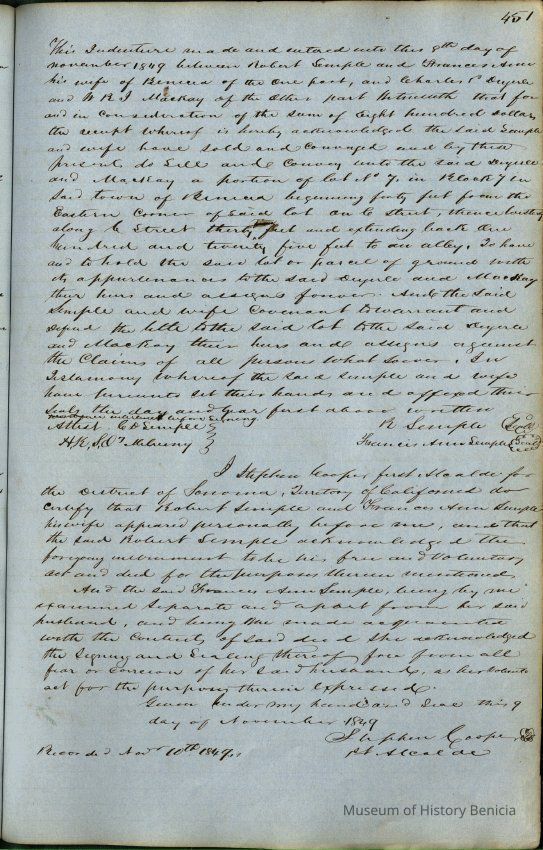 451
This Indenture made and entered into this 9th day of
november 1849 between Robert Semple and Frances Ann
his wife of Benicia of the One part, and Charles
and W R J Mackay of the Other part Witnesseth that for
and in Consideration of the sum of Eight hundred dollars
the receipt whereof is hereby acknowledged the said Semple
and wife have sold and Conveyed and by these
present do Sell and Convey unto the said
and Mackay a portion of lot No 7. in Block 7 in
Said town of Benicia beginning forty feet from the
Eastern Corner of Said lot on C street, thence westerly
along C Street thirty feet and extending back One
hundred and twenty five feet to an alley. To have
and to hold the said lot or parcel of ground with
its appurtenances to the said and Mackay
their heirs and assigns forever. And the Said
Semple and wife Covenant to warrant and
Defend the title to the said lot to the said
and Mackay their heirs and assigns against
the Claims of all persons What Soever. In
Testimony whereof the said Semple and wife
have hereunto set their hands and affixed their
Seals the day and Year first above written
before signing
Attest. C D Semple
R Semple Seal
Francis Ann Semple Seal
I Stephen Cooper first Alcalde for
the District of Sonoma, Territory of California do
Certify that Robert Semple and Frances Ann Semple
his wife appeared personally before me, and that
the said Robert Semple acknowledged the
foregoing instrument to be his free and Voluntary
act and deed for the purposes therein mentioned
And the said Frances Ann Semple, being by me
examined Separate and apart from her said
husband, and being by me made acquainted
with the Contents of said deed she acknowledged
the Signing and Sealing thereof free from all
fear or Coercion of her said husband, as her Volunty
act for the purposes therein expressed.
Given under my hand and Seal this 9
day of November 1849
Stephen Cooper
Alcalde
Recorded Novr 10th 1849.
Museum of History Benicia